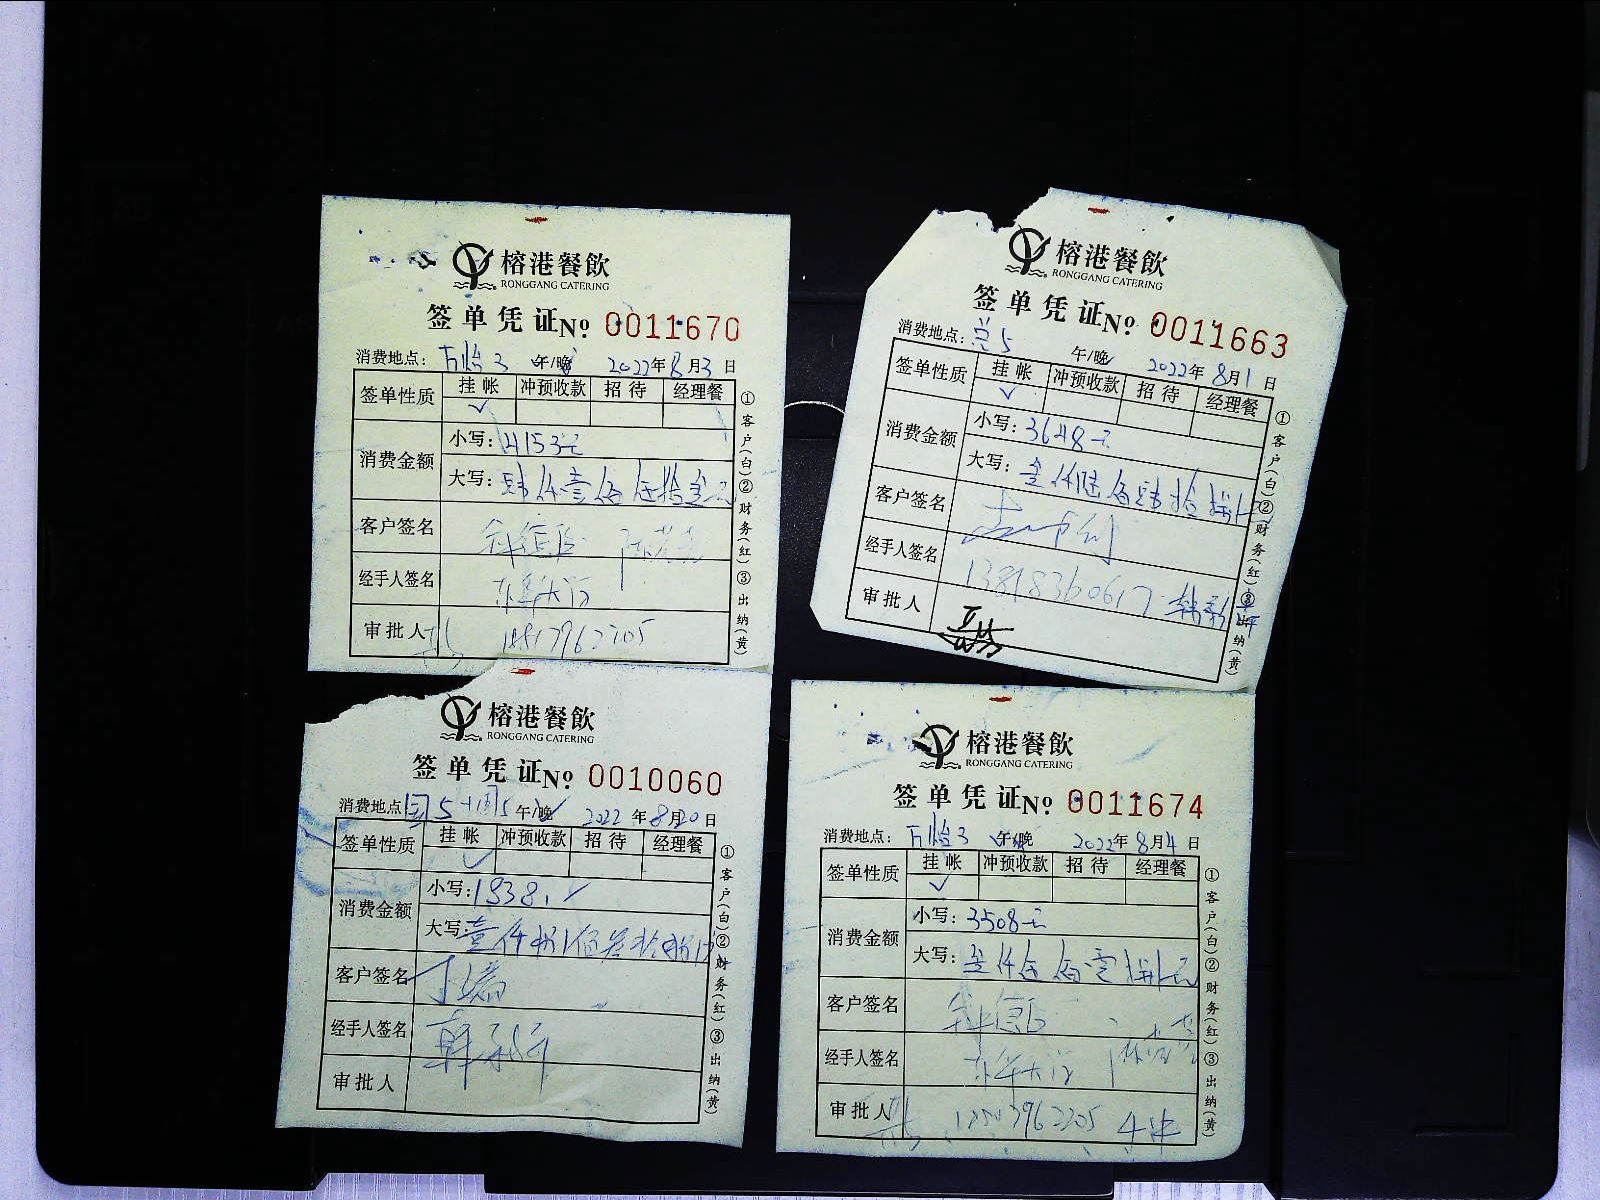 榕港餐飲
RONGGANG CATERING
签单凭证No 0011670
消费地点: 万怡3 午/晚 2022年8月3日
签单性质 挂帐 冲预收款 招待 经理餐
✓
消费金额 小写: 4153元
大写: 肆仟壹佰伍拾叁元
客户签名
经手人签名
审批人
①客户(白)②财务(红)③出纳(黄)
榕港餐飲
RONGGANG CATERING
签单凭证No 0011663
消费地点: 莞5 午/晚 2022年8月1日
签单性质 挂帐 冲预收款 招待 经理餐
✓
消费金额 小写: 3648元
大写: 叁仟陆佰肆拾捌元
客户签名
经手人签名 13818360617
审批人
①客户(白)②财务(红)③出纳(黄)
榕港餐飲
RONGGANG CATERING
签单凭证No 0010060
消费地点 国5 午/晚 2022年8月20日
签单性质 挂帐 冲预收款 招待 经理餐
✓
消费金额 小写: 1838.
大写: 壹仟捌佰叁拾捌
客户签名
经手人签名
审批人
①客户(白)②财务(红)③出纳(黄)
榕港餐飲
RONGGANG CATERING
签单凭证No 0011674
消费地点: 万怡3 午/晚 2022年8月4日
签单性质 挂帐 冲预收款 招待 经理餐
✓
消费金额 小写: 3508元
大写: 叁仟伍佰零捌元
客户签名
经手人签名
审批人
①客户(白)②财务(红)③出纳(黄)